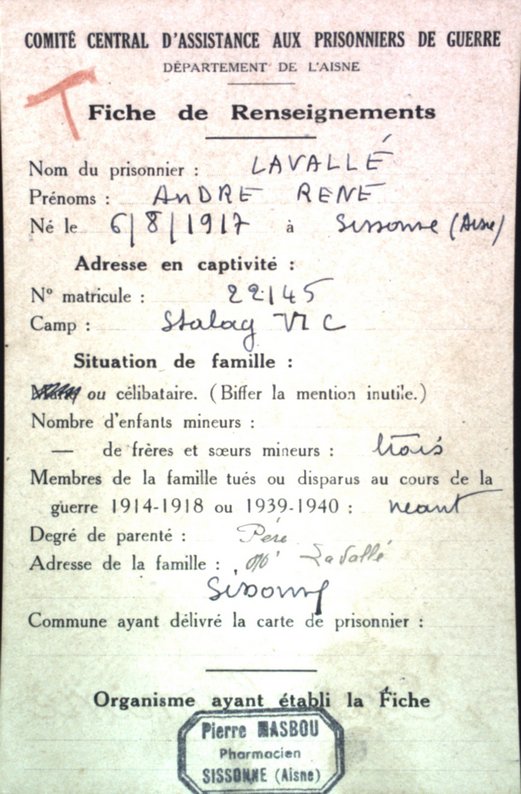 COMITÉ CENTRAL D'ASSISTANCE AUX PRISONNIERS DE GUERRE
DÉPARTEMENT DE L'AISNE
T
Fiche de Renseignements
Nom du prisonnier : LAVALLÉ
Prénoms : ANDRE RENE
Né le 6/8/1917 à Sissonne (Aisne)
Adresse en captivité :
N° matricule : 22145
Camp : Stalag VI C
Situation de famille :
ou célibataire. (Biffer la mention inutile.)
Nombre d'enfants mineurs :
— de frères et sœurs mineurs : trois
Membres de la famille tués ou disparus au cours de la
guerre 1914-1918 ou 1939-1940 : neant
Degré de parenté : Père
Adresse de la famille : Lavallé
Sissonne
Commune ayant délivré la carte de prisonnier :
Organisme ayant établi la Fiche
Pierre MASBOU
Pharmacien
SISSONNE (Aisne)